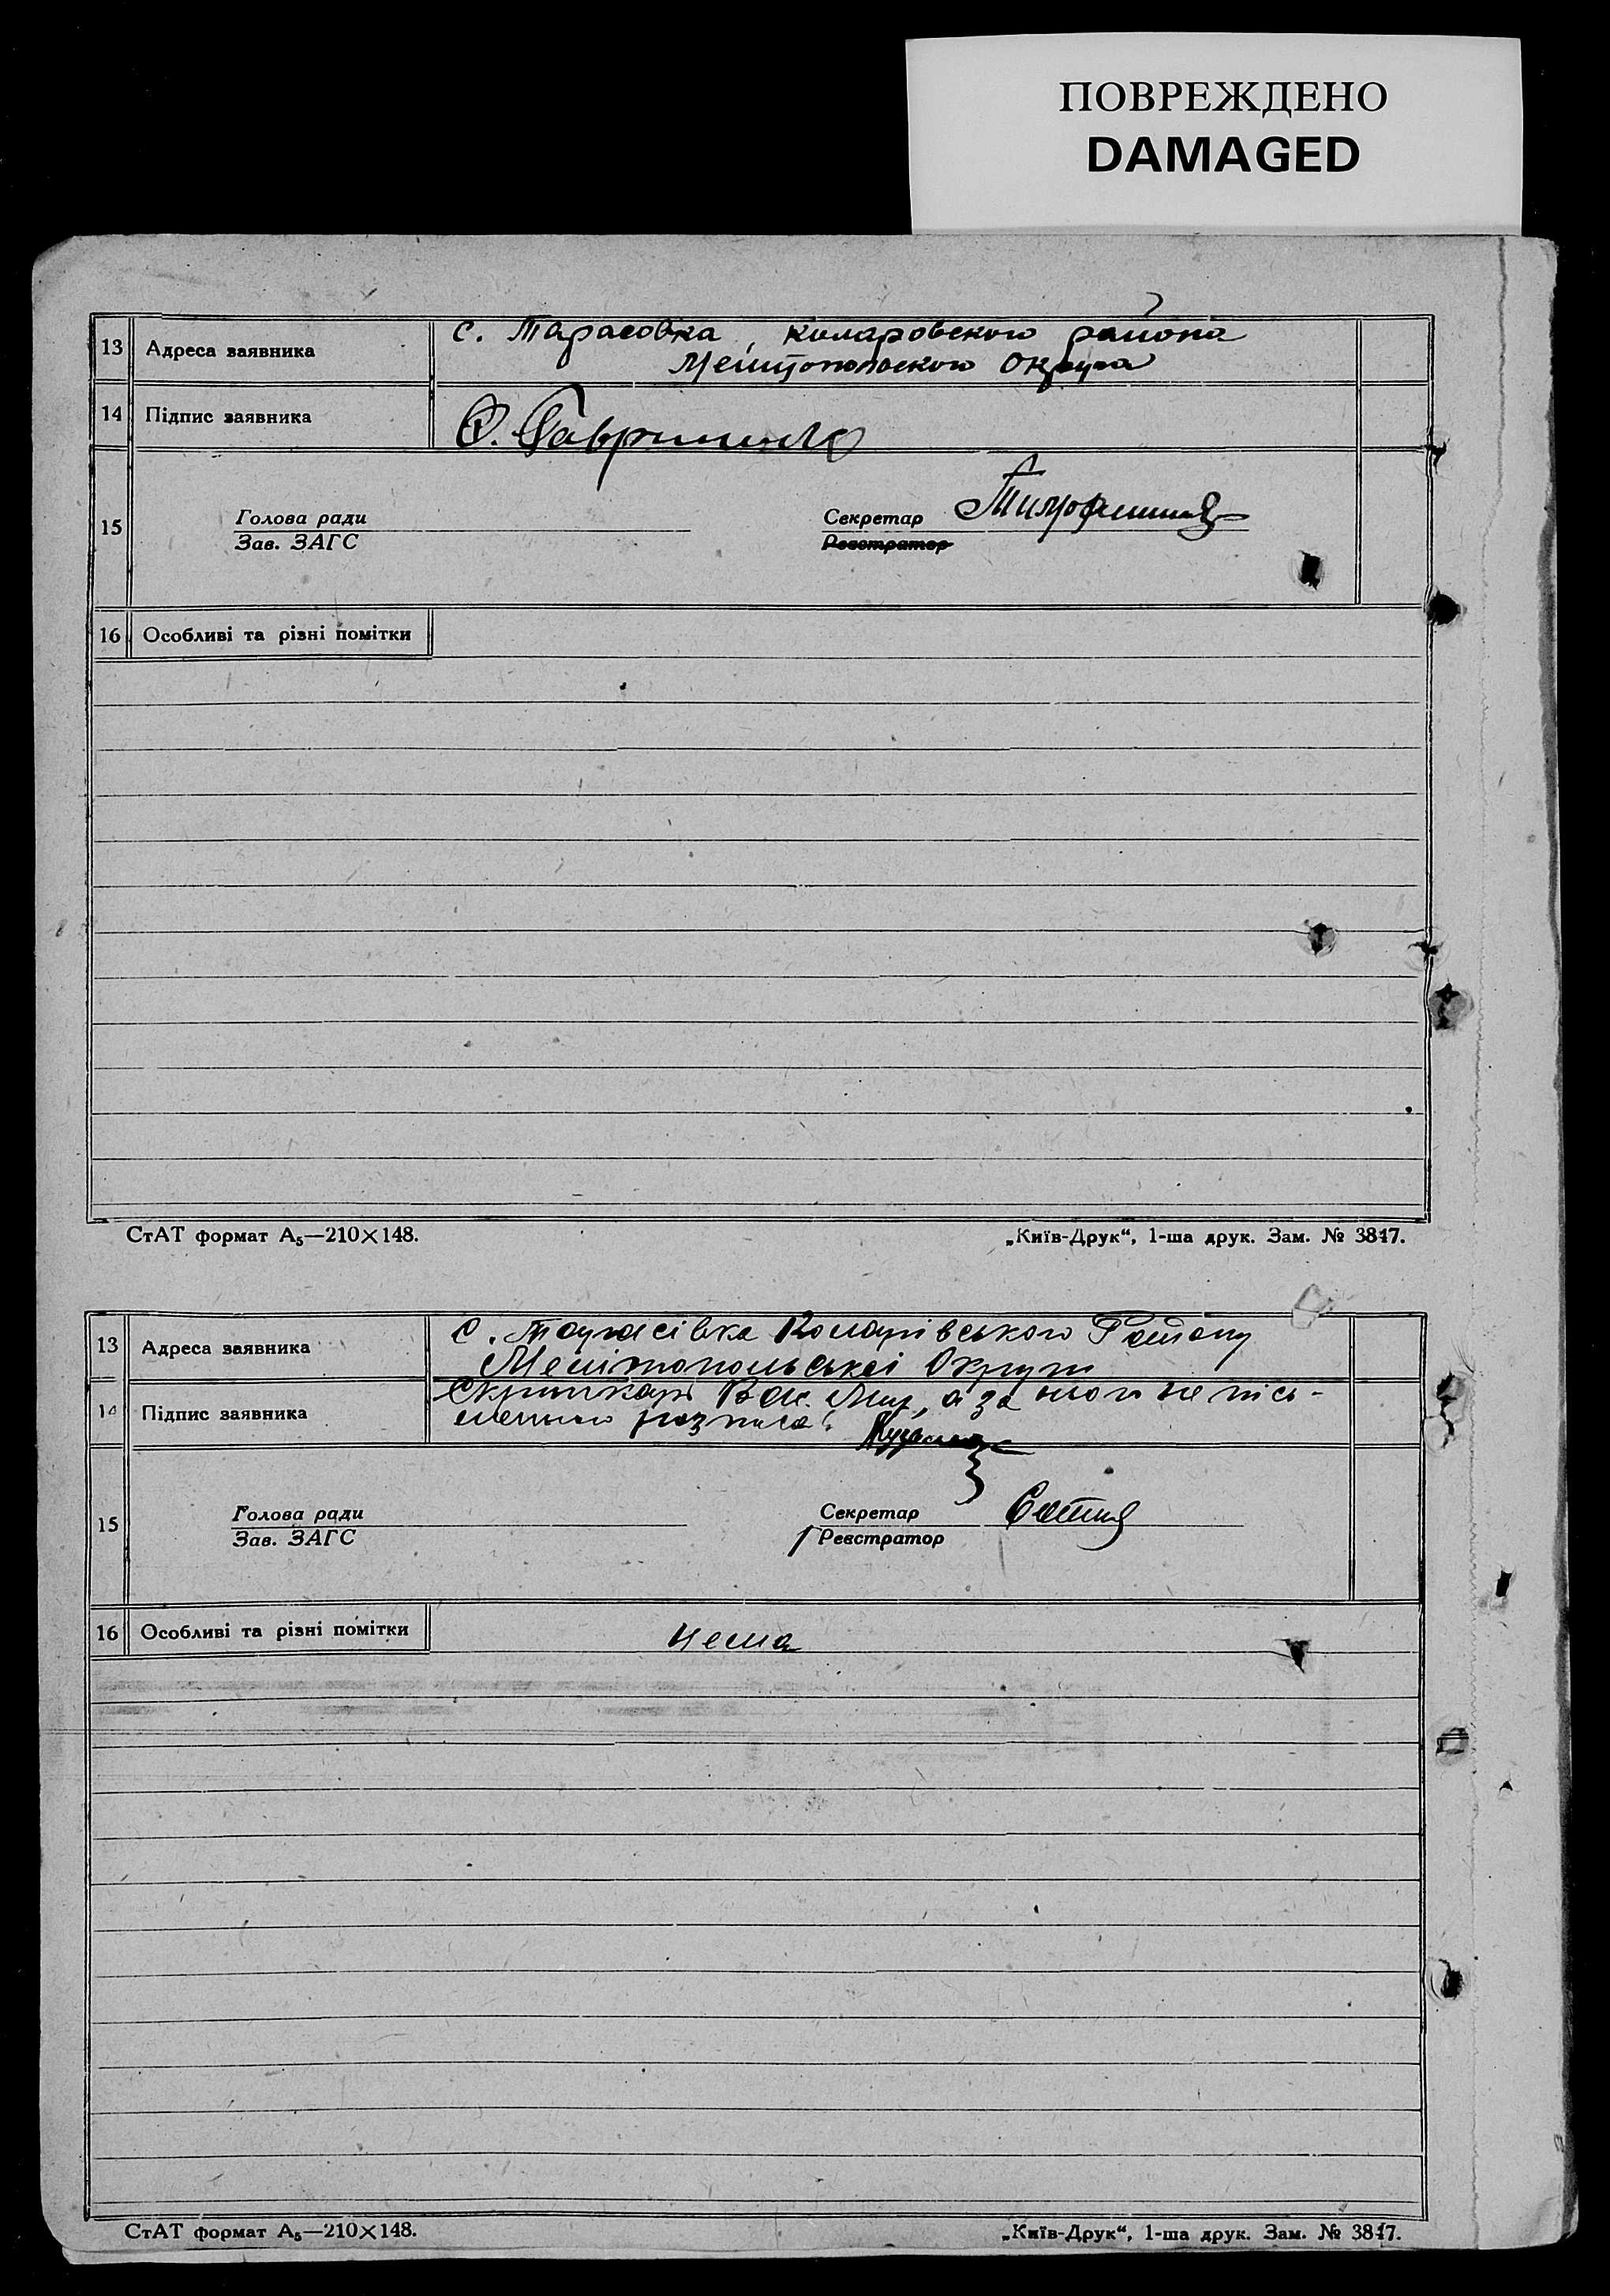 ПОВРЕЖДЕНО
DAMAGED
13 Адреса заявника с. Тарасовка, коларовского района
Мелитопольского Округа
14 Підпис заявника Гавриленко
15 Голова ради Секретар
Зав. ЗАГС Реєстратор
16 Особливі та різні помітки
СтАТ формат А₅—210×148. „Київ-Друк“, 1-ша друк. Зам. № 3817.
13 Адреса заявника с. Тарасівка Коларівського Району
Мелітопольської Округи
14 Підпис заявника а за його не пись-
менного розписа
15 Голова ради Секретар
Зав. ЗАГС Реєстратор
16 Особливі та різні помітки нема
СтАТ формат А₅—210×148. „Київ-Друк“, 1-ша друк. Зам. № 3817.